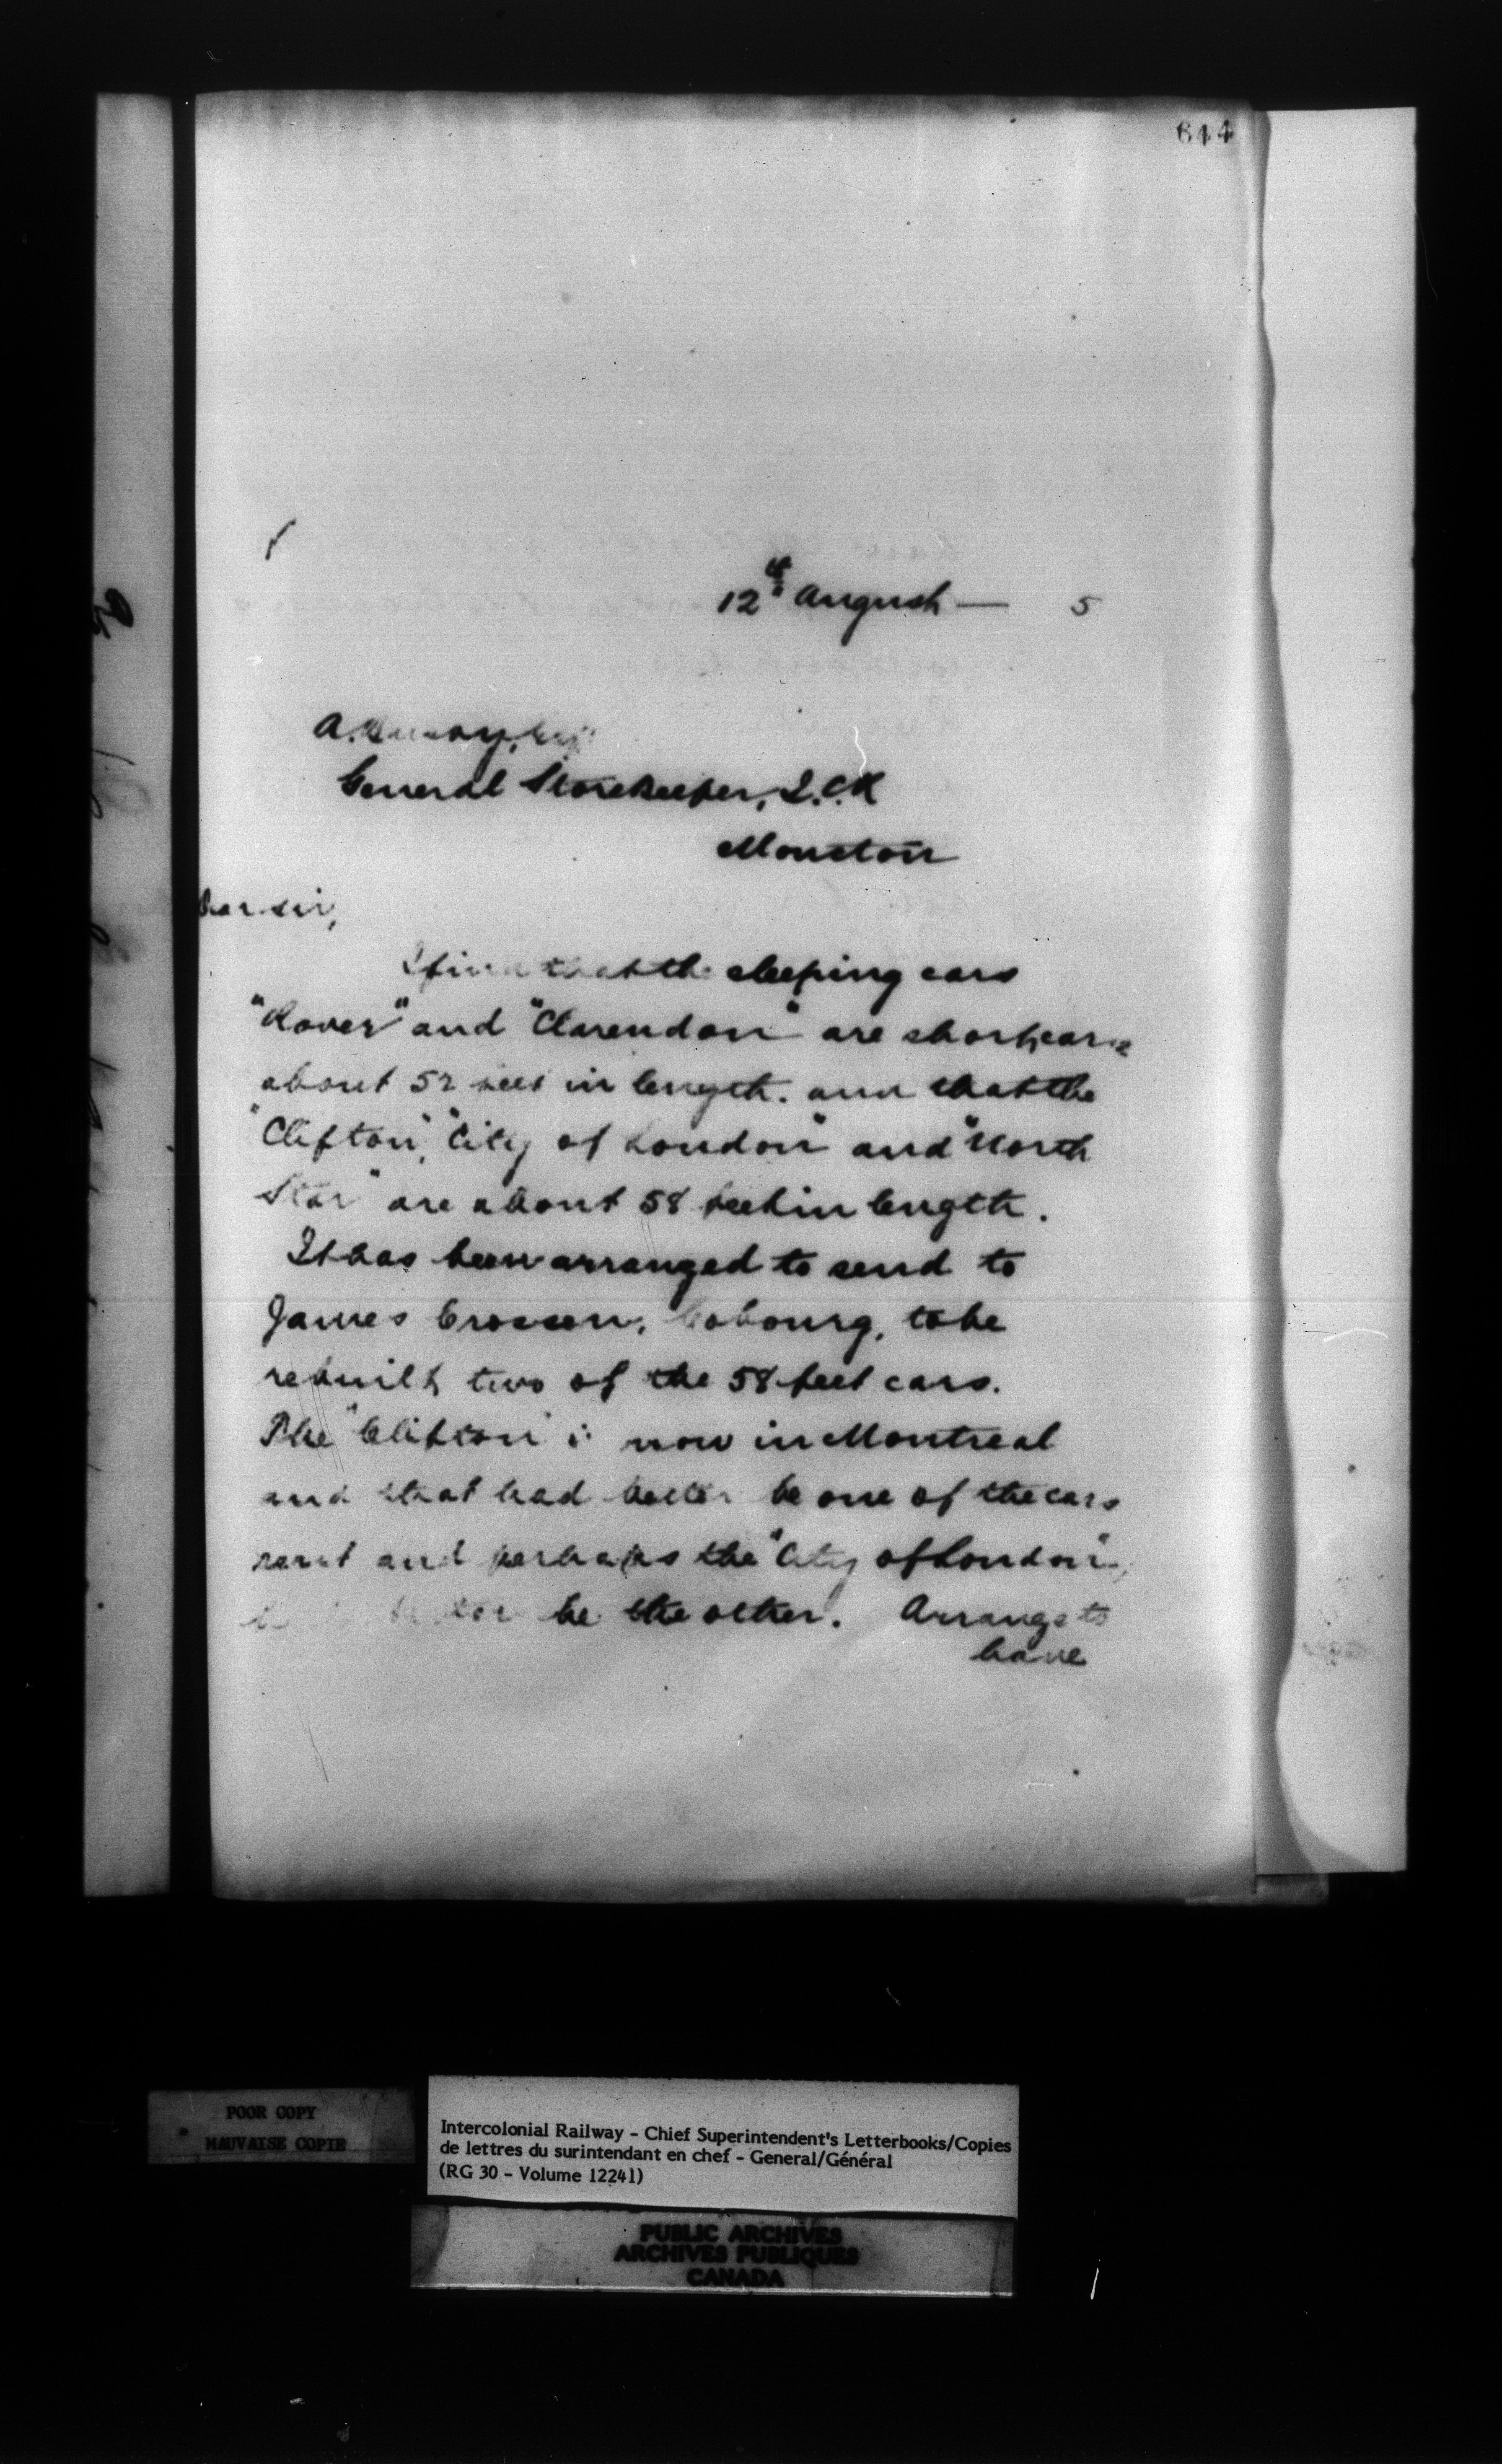 644
12th August — 5
A.
General Storekeeper, I.C.R
Moncton
Dear sir,
I find that the sleeping cars
"Rover" and "Clarendon" are short cars
about 52 feet in length. and that the
"Clifton", "City of London" and "North
Star" are about 58 feet in length.
It has been arranged to send to
James Crossen, Cobourg, to be
rebuilt two of the 58 feet cars.
The "Clifton" is now in Montreal
and that had better be one of the cars
sent and perhaps the "City of London",
had better be the other. Arrange to
have
POOR COPY
MAUVAISE COPIE
Intercolonial Railway - Chief Superintendent's Letterbooks/Copies
de lettres du surintendant en chef - General/Général
(RG 30 - Volume 12241)
PUBLIC ARCHIVES
ARCHIVES PUBLIQUES
CANADA